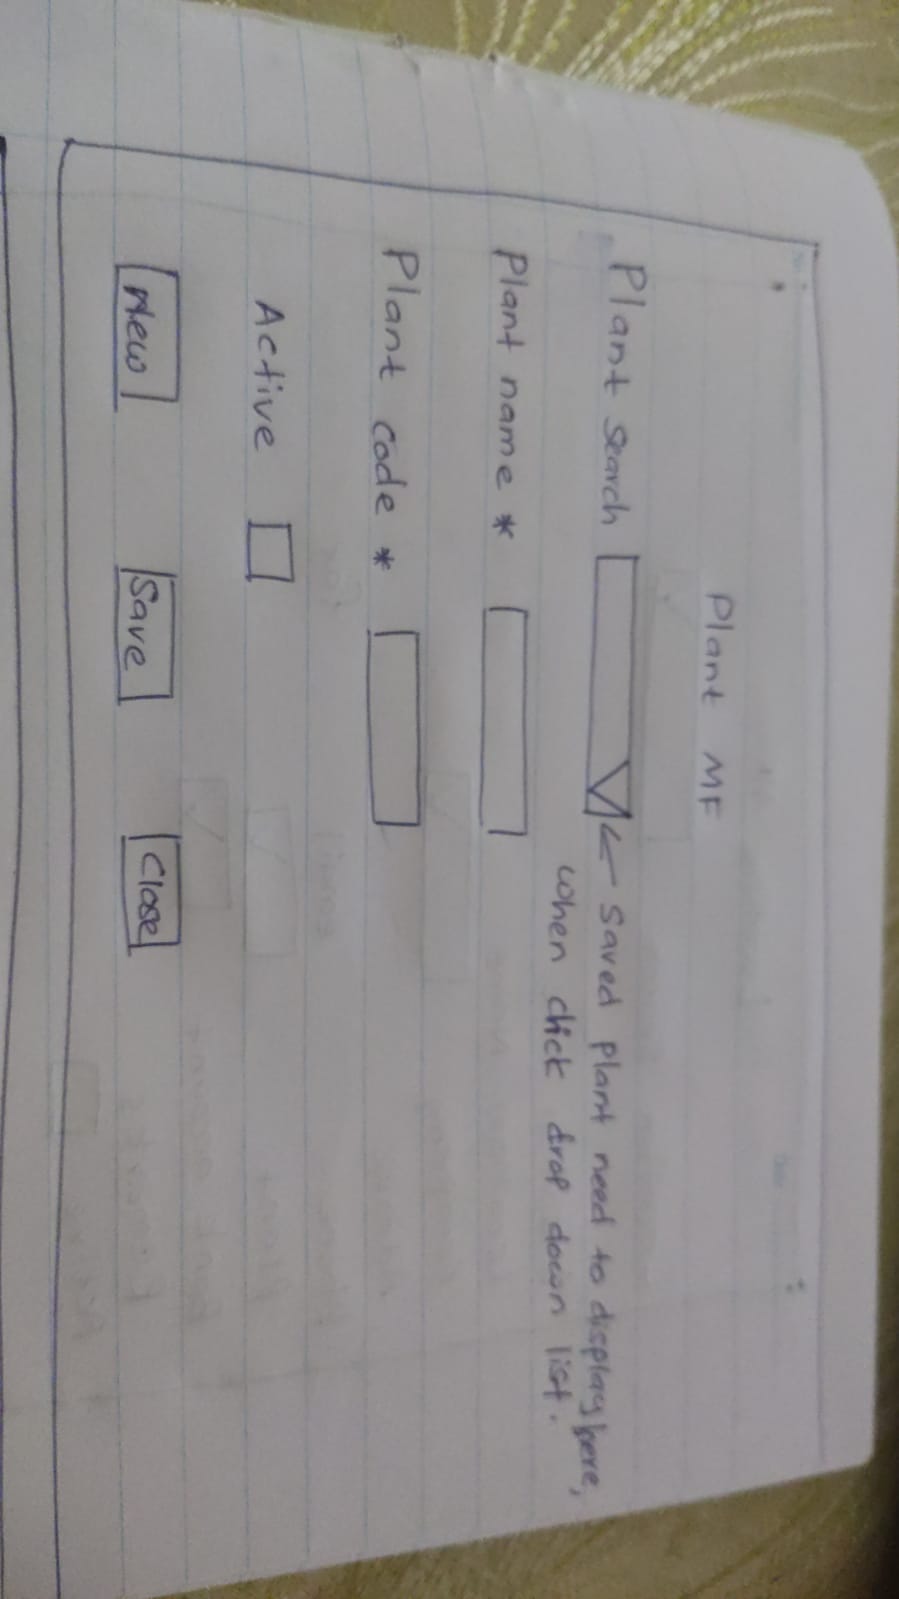 Plant MF
Plant search ← saved plant need to display here,
when click drop down list.
Plant name *
Plant code *
Active
New Save Close